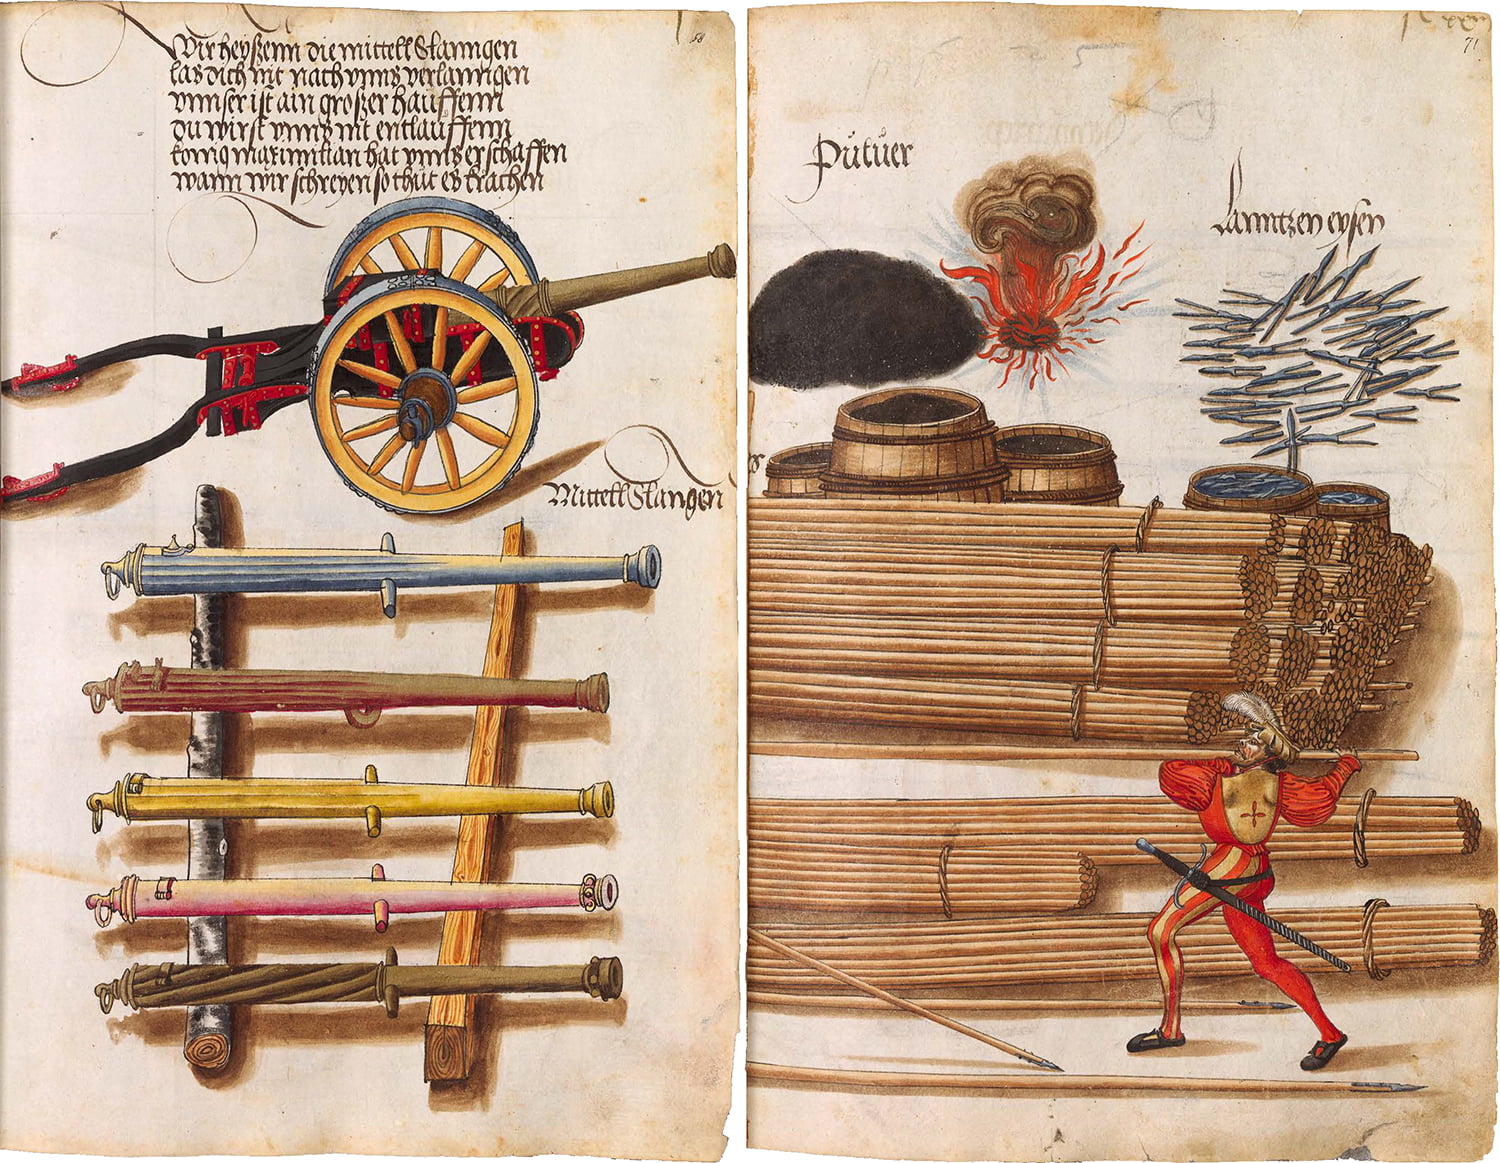 Wir heyssenn die mittell Slanngen
las dich nit nach vnns verlanngen
vnnser ist ain grosser hauffenn
du wirst vnns nit entlauffenn
konig maximilian hat vnns erschaffen
wann wir schreyen so thut es krachen
Mittell Slangen
58
Puluer
Lanntzen eysen
71